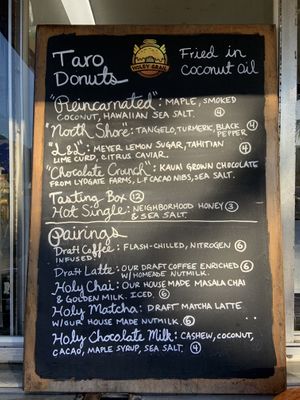 Taro
Donuts
HOLEY GRAIL
Fried in
Coconut Oil
"Reincarnated": MAPLE, SMOKED
COCONUT, HAWAIIAN SEA SALT. 4
"North Shore": TANGELO, TURMERIC, BLACK PEPPER 4
"L&J": MEYER LEMON SUGAR, TAHITIAN
LIME CURD, CITRUS CAVIAR. 4
"Chocolate Crunch": KAUAI GROWN CHOCOLATE
FROM LYDGATE FARMS, L.F CACAO NIBS, SEA SALT.
Tasting Box 12
Hot Single: NEIGHBORHOOD HONEY 3
& SEA SALT.
Pairings
Draft Coffee: FLASH-CHILLED, NITROGEN 6
INFUSED
Draft Latte: OUR DRAFT COFFEE ENRICHED 6
W/ HOMEMADE NUTMILK.
Holy Chai: OUR HOUSE MADE MASALA CHAI
& GOLDEN MILK. ICED. 6
Holy Matcha: DRAFT MATCHA LATTE
W/ OUR HOUSE MADE NUTMILK. 6
Holy Chocolate Milk: CASHEW, COCONUT,
CACAO, MAPLE SYRUP, SEA SALT. 4